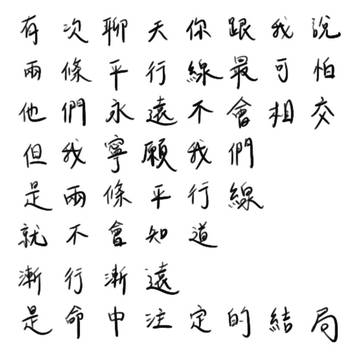 有次聊天你跟我說
兩條平行線最可怕
他們永遠不會相交
但我寧願我們
是兩條平行線
就不會知道
漸行漸遠
是命中注定的結局